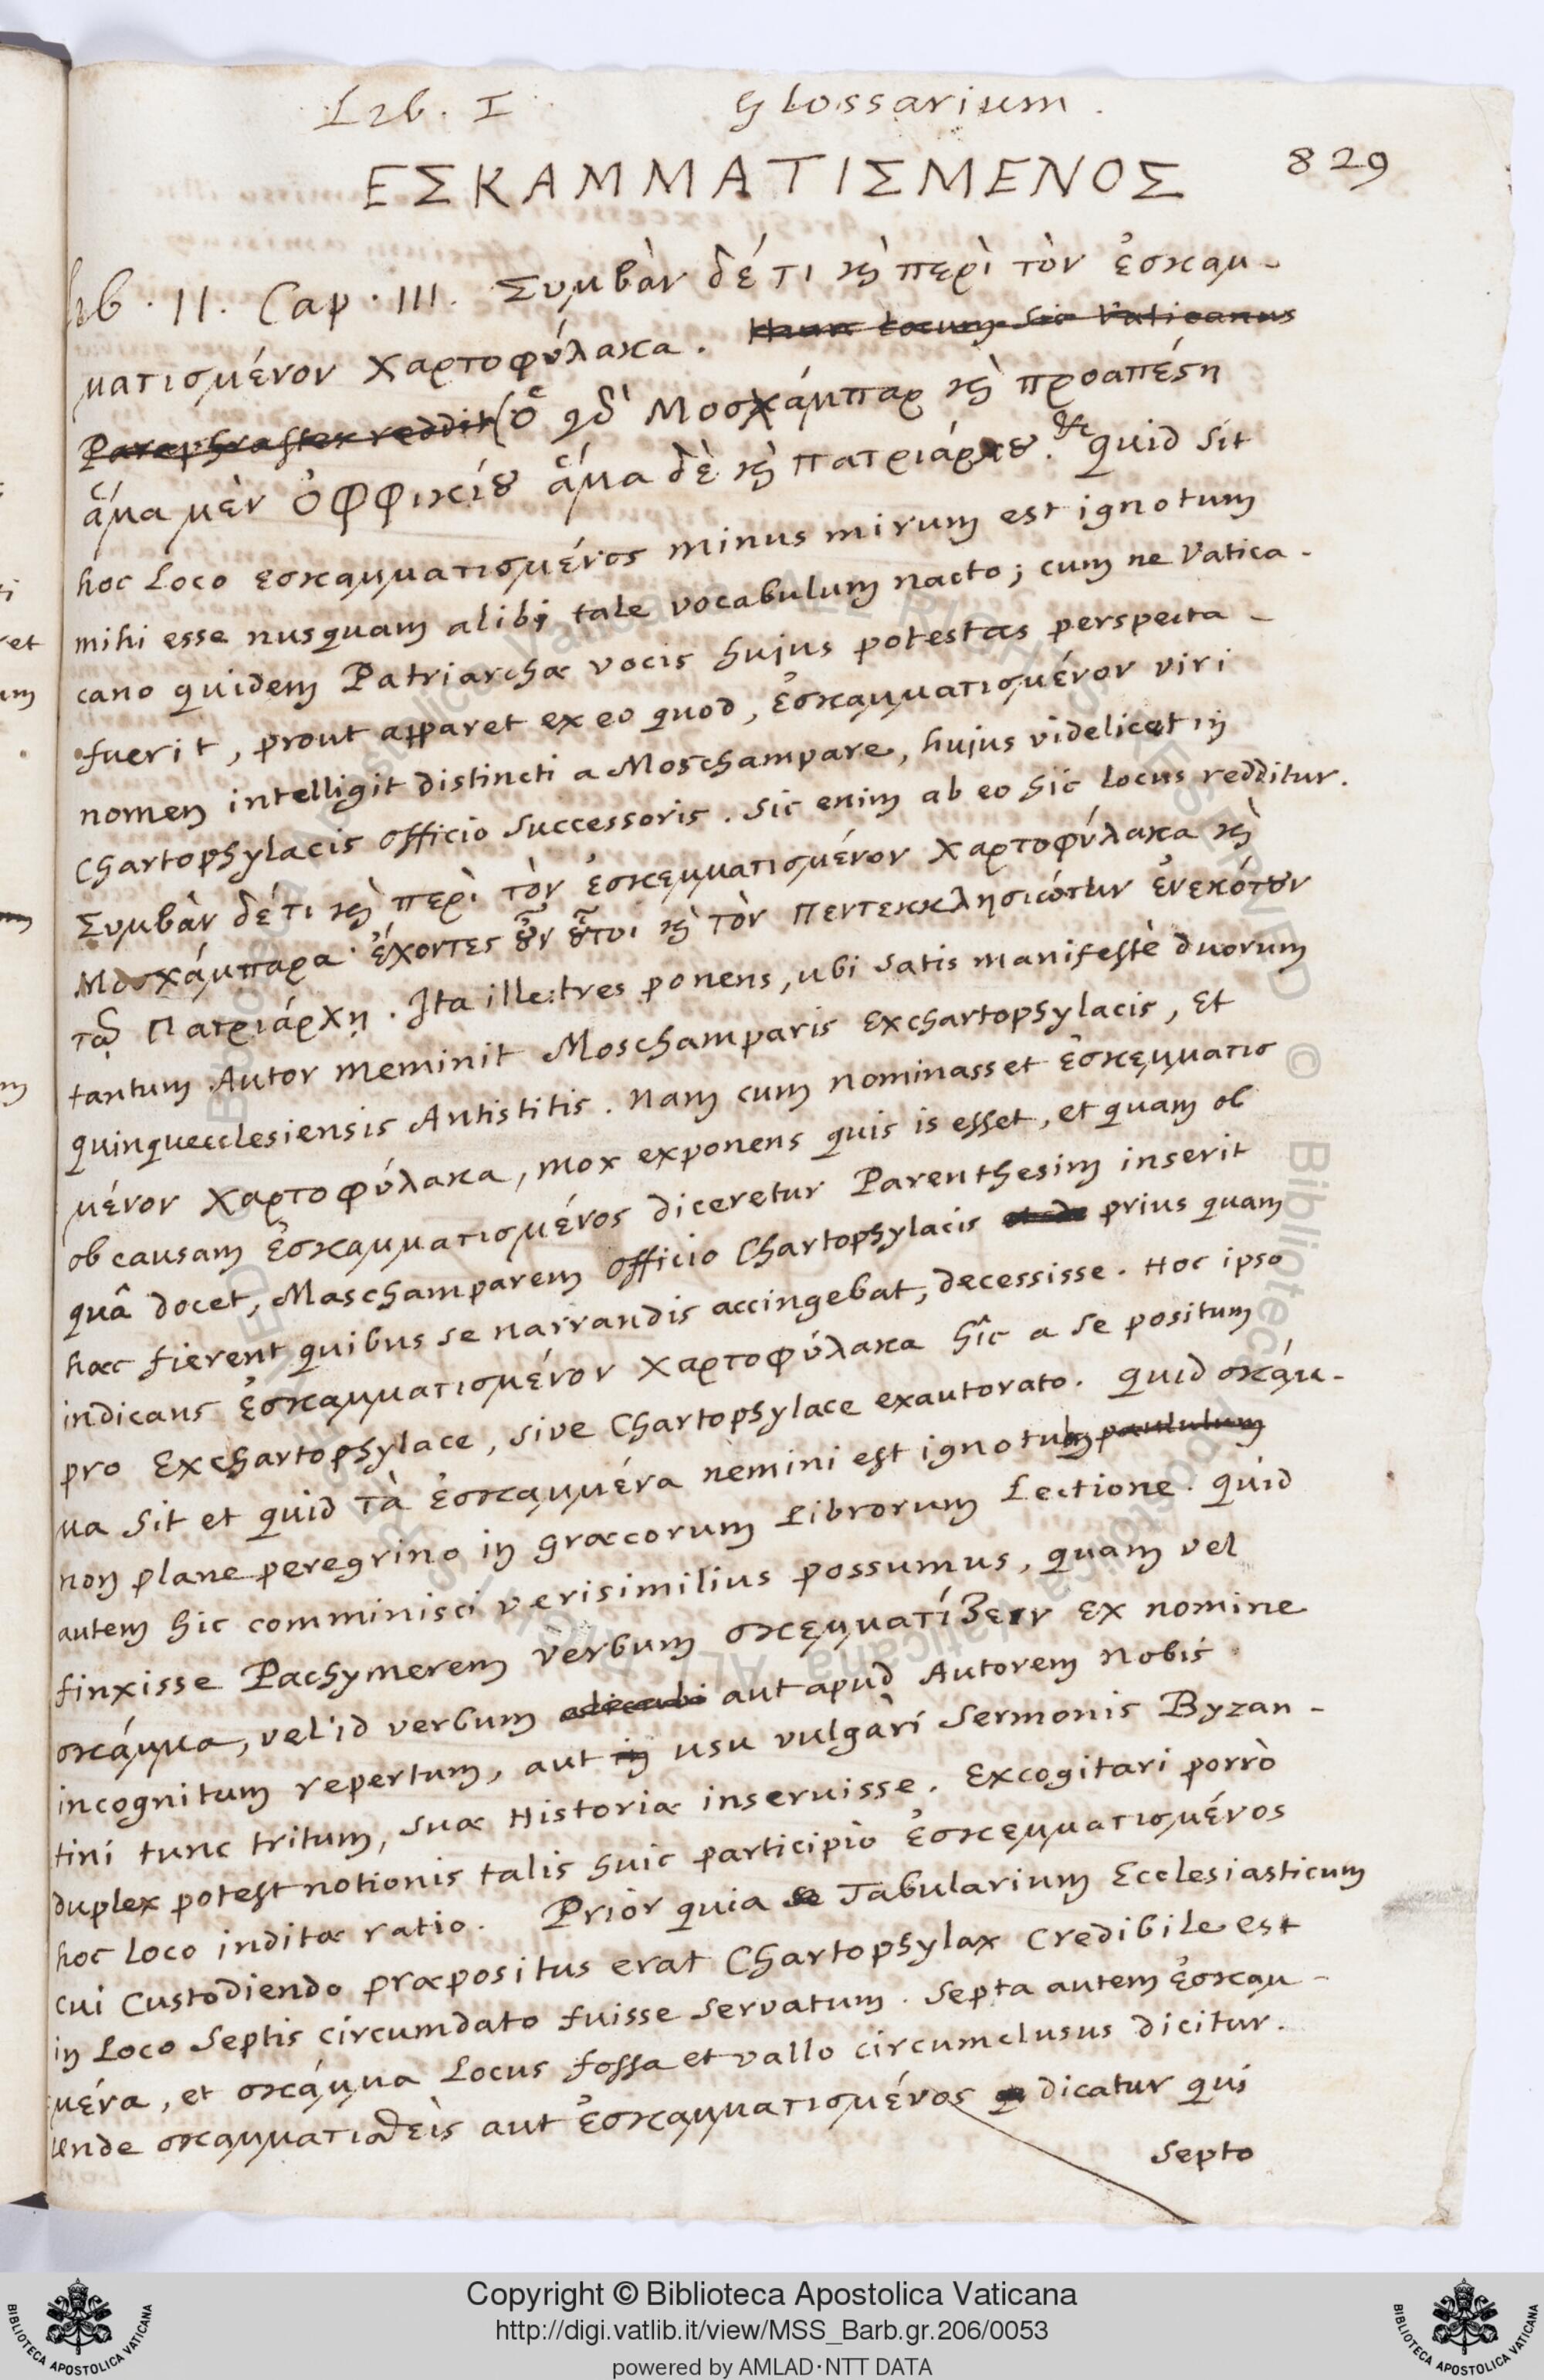 Lib. I Glossarium.
829
ΕΣΚΑΜΜΑΤΙΣΜΕΝΟΣ
Lib. II. Cap. III. Συμβὰν δέ τι ϗ περὶ τὸν ἐσκαμ-
ματισμένον χαρτοφύλακα. Hunc Locum Sic Vaticanus
Paraphrastes reddit (ὁ γδ̀ Μοσχάμπαρ ϗ προαπέςη
ἅμα μὲν ὀφφικίȣ ἅμα δὲ ϗ πατριάρχȣ. &c quid Sit
hoc Loco εσκαμματισμένος minus mirum est ignotum
mihi esse nusquam alibi tale vocabulum nacto; cum ne Vatica-
cano quidem Patriarchæ vocis hujus potestas perspecta-
fuerit, prout apparet ex eo quod, ἐσκαμματισμένον viri
nomen intelligit distincti a Moschampare, hujus videlicet in
Chartophylacis officio Successoris. Sic enim ab eo hic Locus redditur.
Συμβὰν δέ τι ϗ περὶ τὸν ἐσκεμματισμένον χαρτοφύλακα ϗ
Μοσχάμπαρα· ἔχοντες ȣ̓͂ν ȣ̔͂τοι ϗ τὸν Πεντεκκλησιώτην ἐνεκότȣν
τῷ Πατριάρχῃ. Ita ille: tres ponens, ubi Satis manifestè duorum
tantum Autor meminit Moschamparis Exchartophylacis, Et
quinquecclesiensis Antistitis. Nam cum nominasset ἐσκεμματισ
μένον χαρτοφύλακα, mox exponens quis is esset, et quam ob
ob causam ἐσκαμματισμένος diceretur Parenthesim inserit
quâ docet, Maschamparem officio Chartophylacis prius quam
hæc fierent quibus se narrandis accingebat, decessisse. Hoc ipso
indicans ἐσκαμματισμένον χαρτοφύλακα hîc a Se positum
pro Exchartophylace, sive Chartophylace exautorato. Quid σκάμ-
μα Sit et quid τὰ ἐσκαμμένα nemini est ignotum paululum
non plane peregrino in græcorum Librorum Lectione. Quid
autem hic comminisci verisimilius possumus, quam vel
finxisse Pachymerem verbum σκεμματίζειν ex nomine
σκάμμα, vel id verbum alicubi aut apud Autorem nobis
incognitum repertum, aut in usu vulgari Sermonis Byzan-
tini tunc tritum, Suæ Historiæ inseruisse. Excogitari porrò
duplex potest notionis talis huic participio ἐσκεμματισμένος
hoc Loco inditæ ratio. Prior quia Tabularium Ecclesiasticum
cui Custodiendo præpositus erat Chartophylax Credibile est
in Loco Septis circumdato fuisse Servatum. Septa autem ἐσκαμ-
μένα, et σκάμμα Locus fossa et vallo circumclusus dicitur.
unde σκαμματιθεὶς aut ἐσκαμματισμένος dicatur qui
Septo
Copyright © Biblioteca Apostolica Vaticana
http://digi.vatlib.it/view/MSS_Barb.gr.206/0053
powered by AMLAD·NTT DATA
BIBLIOTECA APOSTOLICA VATICANA
BIBLIOTECA APOSTOLICA VATICANA